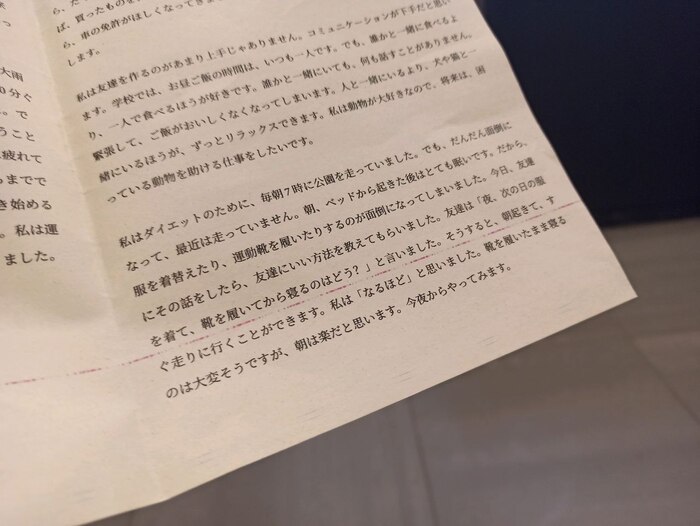 ば、買ったものを
ら、車の免許がほしくなってきま
します。
私は友達を作るのがあまり上手じゃありません。コミュニケーションが下手だと思い
ます。学校では、お昼ご飯の時間は、いつも一人です。でも、誰かと一緒に食べるよ
り、一人で食べるほうが好きです。誰かと一緒にいても、何も話すことがありません。
緊張して、ご飯がおいしくなくなってしまいます。人と一緒にいるより、犬や猫と一
緒にいるほうが、ずっとリラックスできます。私は動物が大好きなので、将来は、困
っている動物を助ける仕事をしたいです。
私はダイエットのために、毎朝7時に公園を走っていました。でも、だんだん面倒に
なって、最近は走っていません。朝、ベッドから起きた後はとても眠いです。だから、
服を着替えたり、運動靴を履いたりするのが面倒になってしまいました。今日、友達
にその話をしたら、友達にいい方法を教えてもらいました。友達は「夜、次の日の服
を着て、靴を履いてから寝るのはどう？」と言いました。そうすると、朝起きて、す
ぐ走りに行くことができます。私は「なるほど」と思いました。靴を履いたまま寝る
のは大変そうですが、朝は楽だと思います。今夜からやってみます。
大雨
0分ぐ
。で
うこと
疲れて
るまでで
き始める
。私は運
ました。